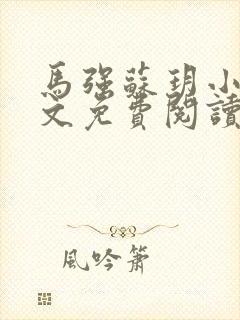 馬強蘇玥小
文免費閱讀
風吟簫